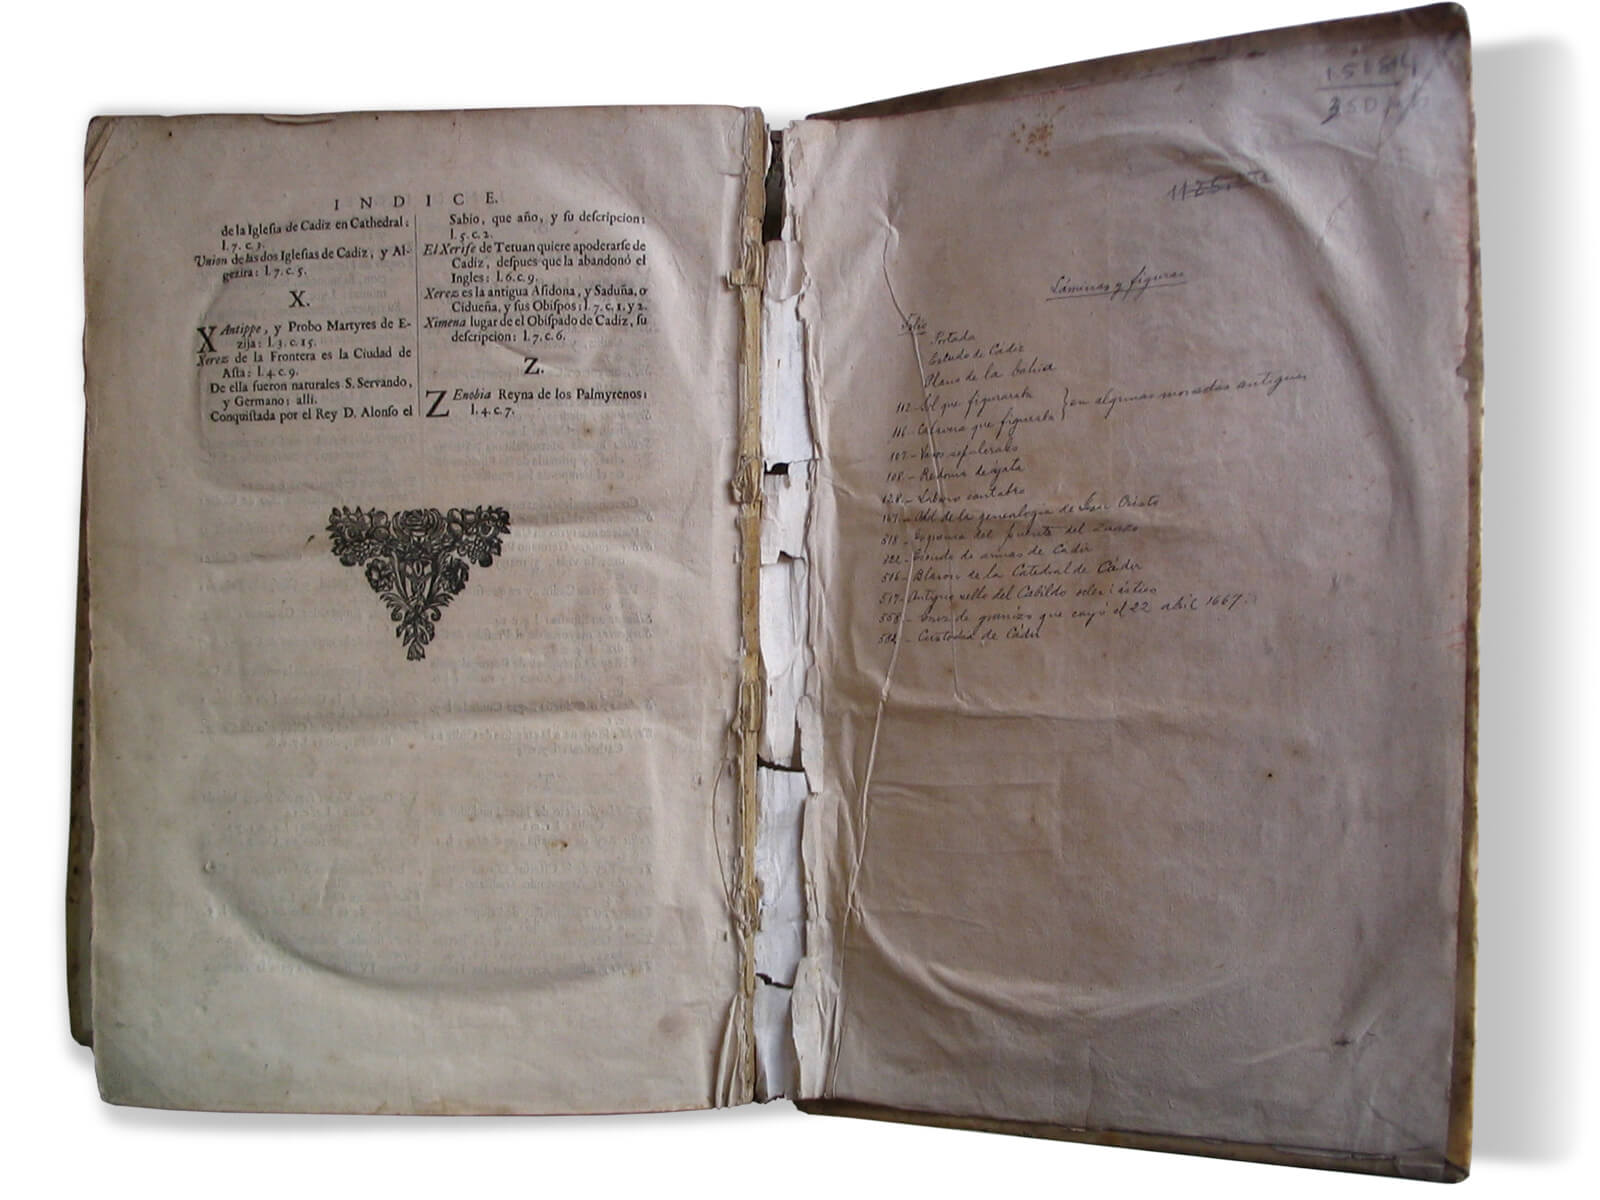 INDICE.
de la Iglesia de Cadiz en Cathedral:
l. 7. c. 3.
Union de las dos Iglesias de Cadiz, y Al-
gezira: l. 7. c. 5.
X.
XAntippe, y Probo Martyres de E-
zija: l. 3. c. 15.
Xerez de la Frontera es la Ciudad de
Asta: l. 4. c. 9.
De ella fueron naturales S. Servando,
y Germano; alli.
Conquistada por el Rey D. Alonso el
Sabio, que año, y su descripcion:
l. 5. c. 2.
El Xerife de Tetuan quiere apoderarse de
Cadiz, despues que la abandonó el
Ingles: l. 6. c. 9.
Xerez es la antigua Asidona, y Saduña, o
Cidueña, y sus Obispos: l. 7. c. 1. y 2.
Ximena lugar de el Obispado de Cadiz, su
descripcion: l. 7. c. 6.
Z.
ZEnobia Reyna de los Palmyrenos:
l. 4. c. 7.
15184
350
Láminas y figuras
Folio
Portada
Escudo de Cádiz
Plano de la bahia
112.- Sol que figuraba
116.- Calavera que figuraba } en algunas monedas antiguas
107.- Vasos sepulcrales
108.- Redoma de ágata
128.- Lábaro cantabro
167.- de la genealogia de Jesu Cristo
318.- del puente del Zuazo
322.- Escudo de armas de Cadiz
516.- Blason de la Catedral de Cádiz
517.- Antiguo sello del Cabildo eclesiástico
558.- Cruz de granizo que cayó el 22 abril 1667.
582.- Custodia de Cádiz